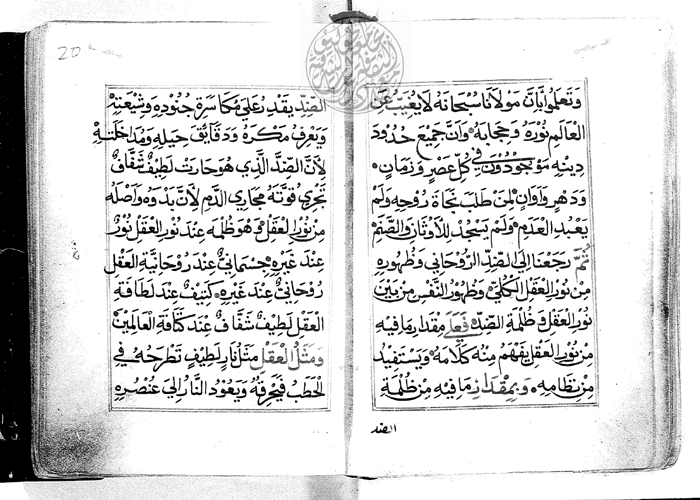 وَتَعْلَمُوا بِاَنَّ مَوْلَانَا سُبْحَانَهُ لَا يُغَيِّبُ عَنِ
الْعَالَمِ نُوْرَهُ وَحِجَابَهُ وَاَنَّ جَمِيْعَ حُدُوْدِ
دِيْنِهِ مَوْجُوْدُوْنَ فِيْ كُلِّ عَصْرٍ وَزَمَانٍ
وَدَهْرٍ وَاَوَانٍ لِمَنْ طَلَبَ نَجَاةَ رُوْحِهِ وَلَمْ
يَعْبُدِ الْعَدَمَ وَلَمْ يَسْجُدْ لِلْاَوْثَانِ وَالصَّنَمِ
ثُمَّ رَجَعْنَا اِلَى الضِّدِّ الرُّوْحَانِيِّ وَظُهُوْرِهِ
مِنْ نُوْرِ الْعَقْلِ الْكُلِّيِّ وَظُهُوْرِ النَّفْسِ مِنْ بَيْنِ
نُوْرِ الْعَقْلِ وَظُلْمَةِ الضِّدِّ فَعَلَى مِقْدَارِ مَا فِيْهِ
مِنْ نُوْرِ الْعَقْلِ يَفْهَمُ مِنْهُ كَلَامَهُ وَيَسْتَفِيْدُ
مِنْ نِظَامِهِ وَبِمِقْدَارِ مَا فِيْهِ مِنْ ظُلْمَةِ
الضد
20
الضِّدِّ يَقْدِرُ عَلَى مُكَاسَرَةِ جُنُوْدِهِ وَشِيْعَتِهِ
وَيَعْرِفُ مَكْرَهُ وَدَقَآئِقَ حِيَلِهِ وَمُدَاخَلَتِهِ
لِاَنَّ الضِّدَّ الَّذِيْ هُوَ حَارَتْ لَطِيْفٌ شَفَّافٌ
تَجْرِيْ قُوَّتُهُ مَجَارِيَ الدَّمِ لِاَنَّ بَدْوَهُ وَاَصْلَهُ
مِنْ نُوْرِ الْعَقْلِ وَهُوَ ظُلْمَةٌ عِنْدَ نُوْرِ الْعَقْلِ نُوْرٌ
عِنْدَ غَيْرِهِ جِسْمَانِيٌّ عِنْدَ رُوْحَانِيَّةِ الْعَقْلِ
رُوْحَانِيٌّ عِنْدَ غَيْرِهِ كَثِيْفٌ عِنْدَ لَطَافَةِ
الْعَقْلِ لَطِيْفٌ شَفَّافٌ عِنْدَ كَثَافَةِ الْعَالَمِيْنَ
وَمَثَلُ الْعَقْلِ مَثَلُ نَارٍ لَطِيْفٍ تَطْرَحُهُ فِي
الْحَطَبِ فَيَحْرِقُهُ وَيَعُوْدُ النَّارُ اِلَى عُنْصُرِهِ